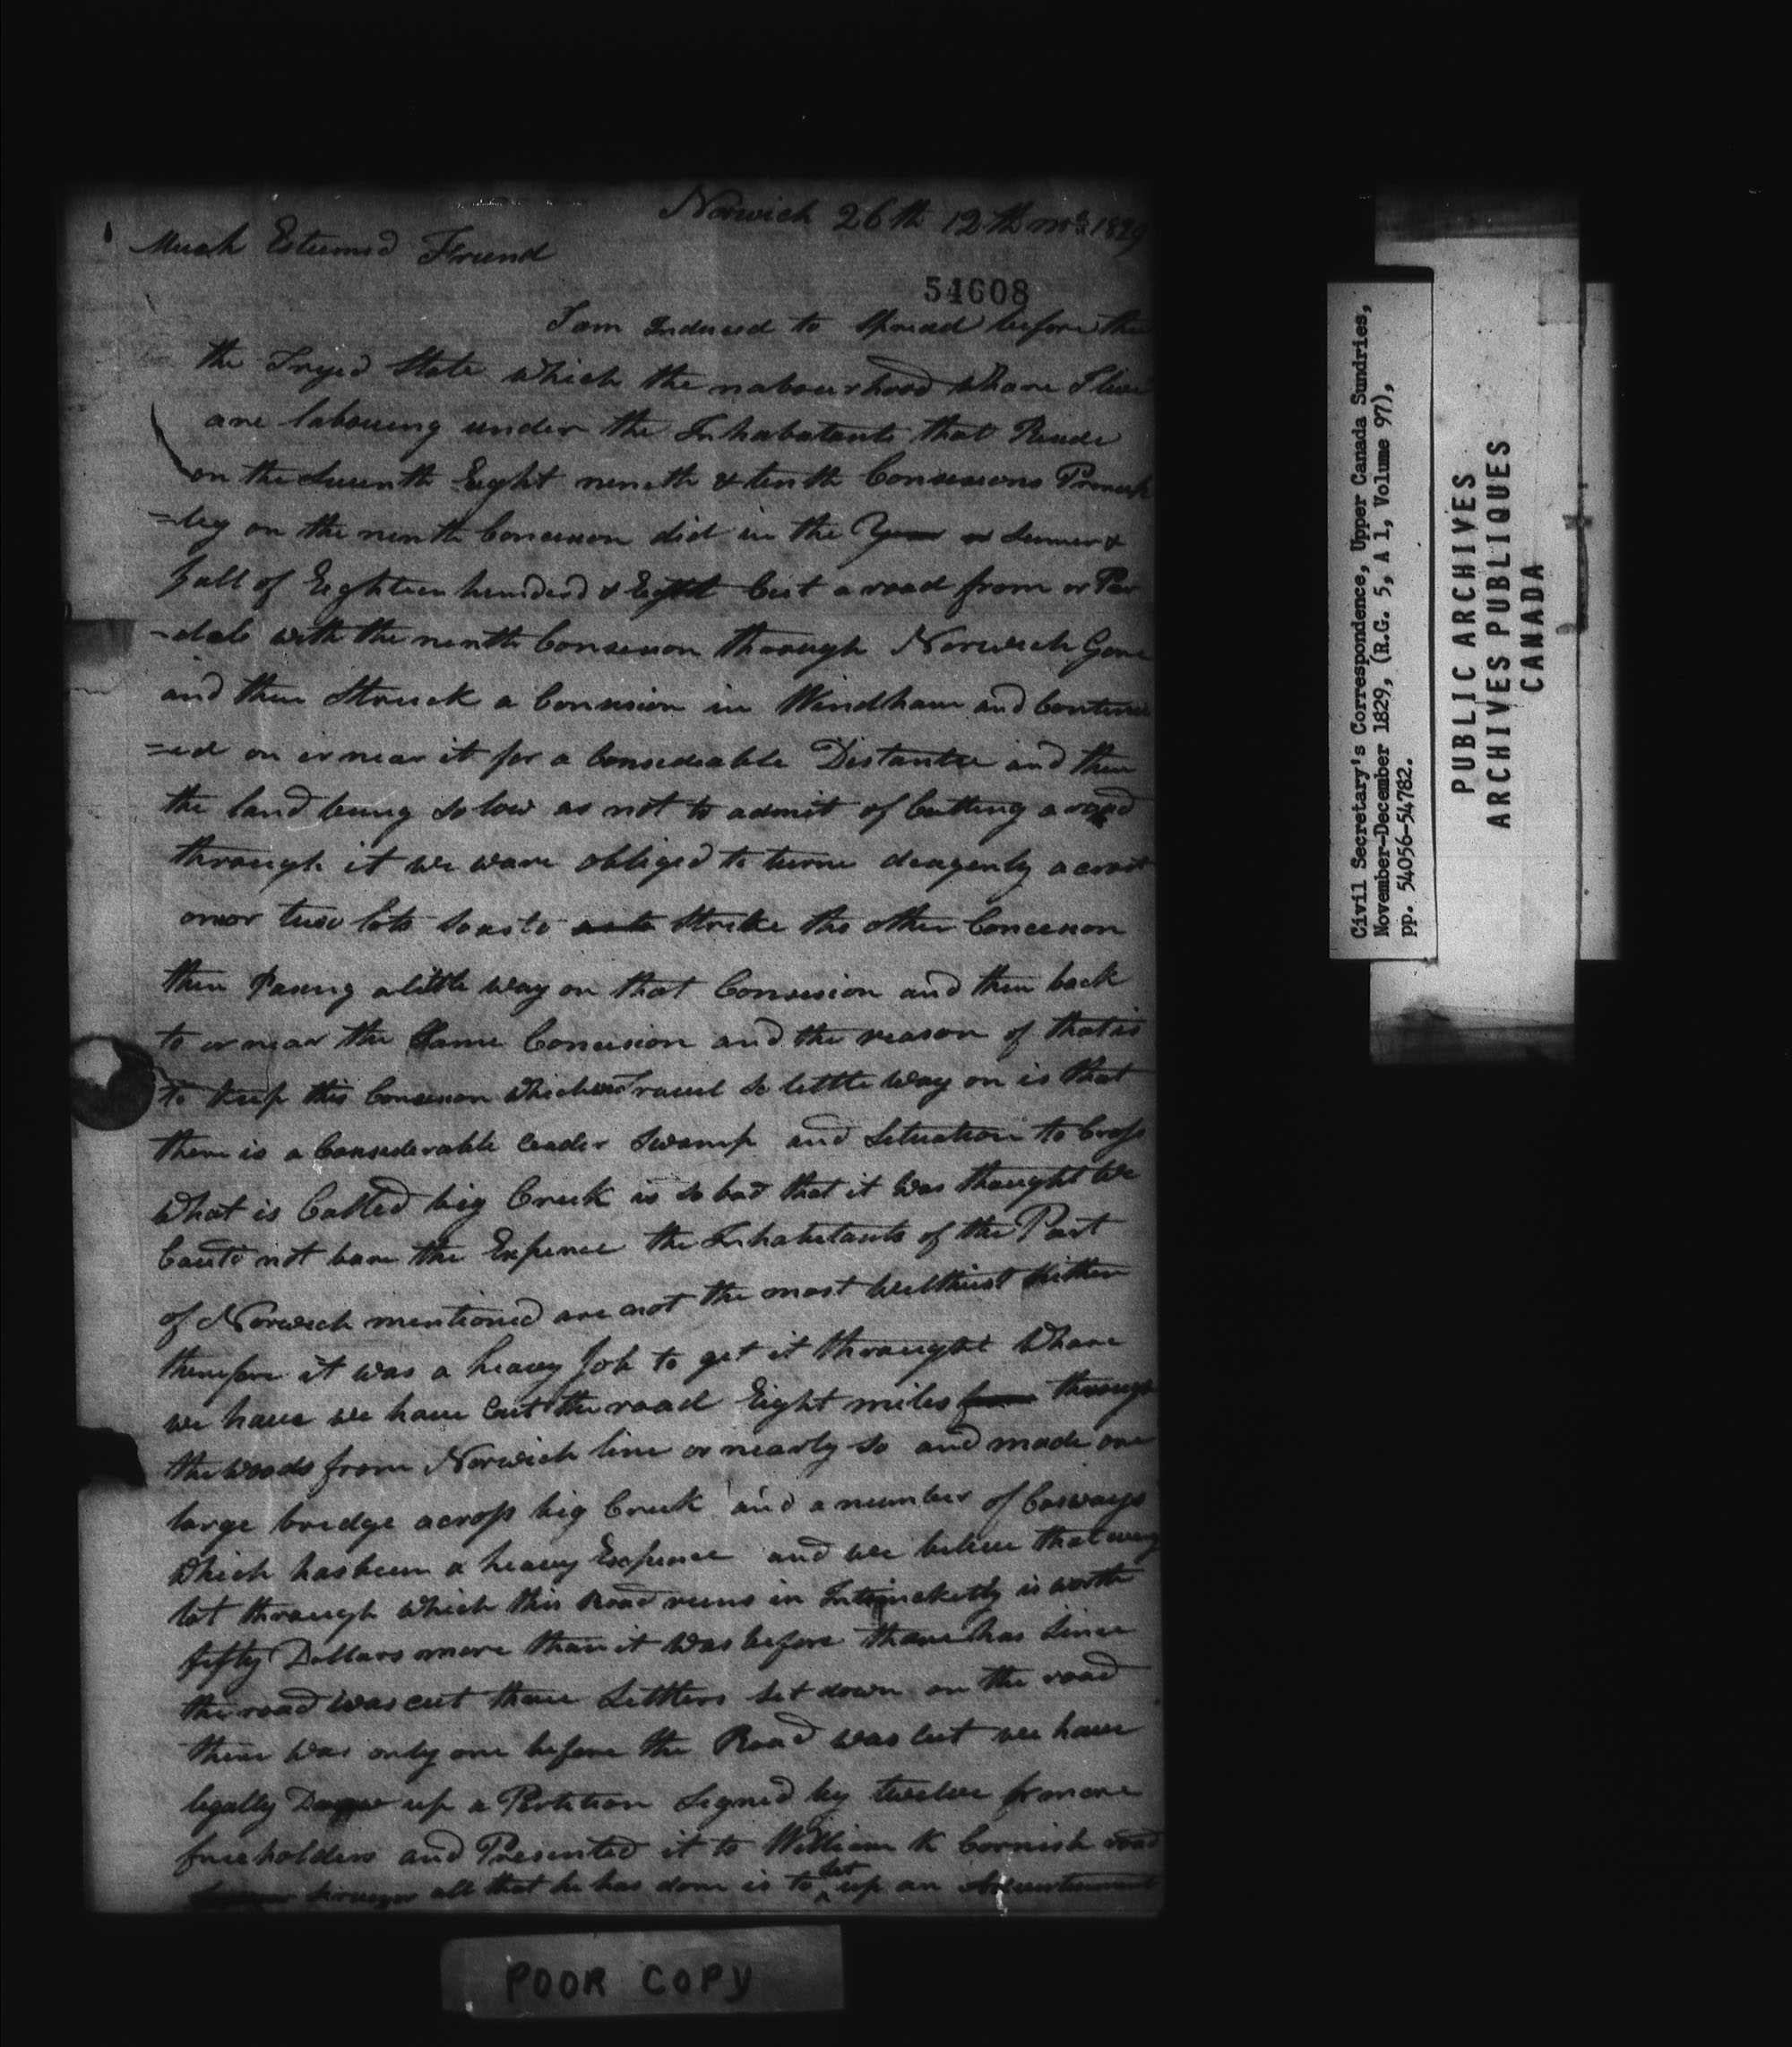 Norwich 26th 12th mo 1829
Much Esteemd Friend
54608
I am Induced to Spread before thee
the Tryed State which the nabourhood Whare I live
are labouring under the Inhabatants that Reside
on the Seventh Eight nineth & tenth Concessions Princip
=ley on the ninth Concession did in the Year Sumer &
fall of Eighteen hunderd & Eight Cut a road from or Par
-elel with the ninth Consesion through Norwich Gore
and then Struck a Consesion in Windham and Continu
=ed on or near it for a Considerable Distantce and then
the land being So low as not to admit of Cutting a road
through it we ware obliged to turne deagenly acrost
one or two lots So as to Strike the other Concession
then Pasing a little way on that Consesion and then back
to or near the Same Consesion and the reason of that is
to keep this Consesion which we Travel So little way on is that
there is a Considerable Ceader Swamp and Situation to Cross
What is Called big Creek is So bad that it was thought We
Could not bare the Expence the Inhabetants of the Part
of Norwich mentioned are not the most Welthiest Kither
therefore it was a heavey Job to get it throught Whare
we have we have Cut the road Eight miles through
the Woods from Norwich line or nearly So and made one
large bridge across big Creek and a number of Casways
Which has been a heavey Expence and we believe that every
lot through Which this Road runs in is worth
fifty Dollars more than it Was before thare has Since
the road was cut three Settlers Set down on the road
there was only one before the Road was Cut we have
legally up a Petition Signed by twelve free
freeholders and Presented it to William K Cornish road
all that he has done is to Set up an
POOR COPY
Civil Secretary's Correspondence, Upper Canada Sundries,
November-December 1829, (R.G. 5, A 1, Volume 97),
pp. 54056-54782.
PUBLIC ARCHIVES
ARCHIVES PUBLIQUES
CANADA